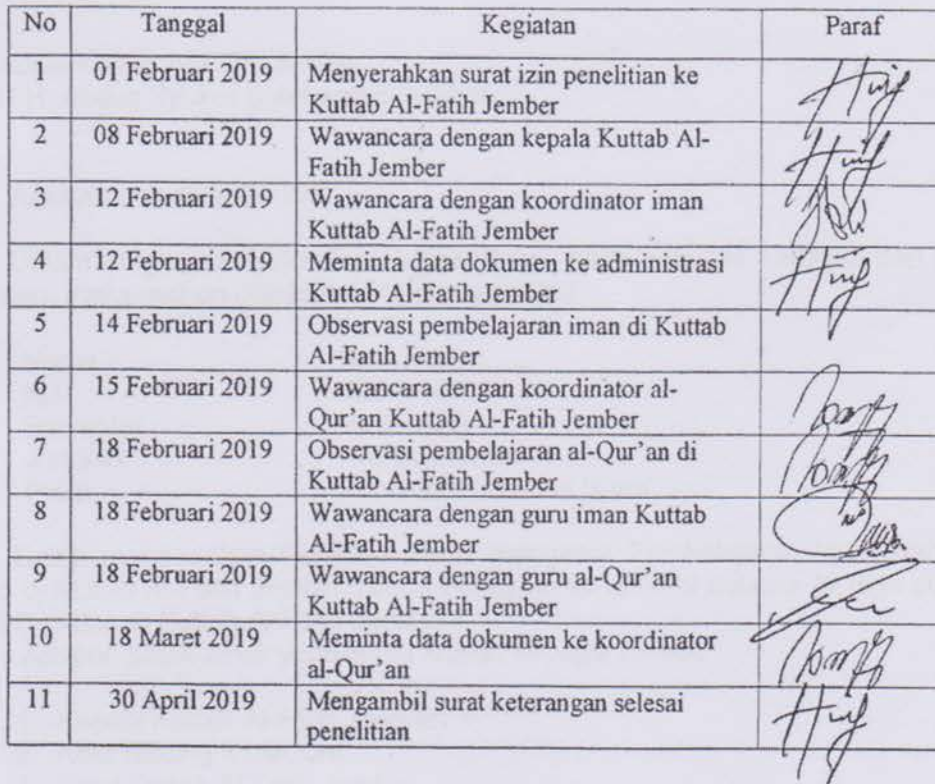 No Tanggal Kegiatan Paraf
1 01 Februari 2019 Menyerahkan surat izin penelitian ke
Kuttab Al-Fatih Jember
2 08 Februari 2019 Wawancara dengan kepala Kuttab Al-
Fatih Jember
3 12 Februari 2019 Wawancara dengan koordinator iman
Kuttab Al-Fatih Jember
4 12 Februari 2019 Meminta data dokumen ke administrasi
Kuttab Al-Fatih Jember
5 14 Februari 2019 Observasi pembelajaran iman di Kuttab
Al-Fatih Jember
6 15 Februari 2019 Wawancara dengan koordinator al-
Qur'an Kuttab Al-Fatih Jember
7 18 Februari 2019 Observasi pembelajaran al-Qur'an di
Kuttab Al-Fatih Jember
8 18 Februari 2019 Wawancara dengan guru iman Kuttab
Al-Fatih Jember
9 18 Februari 2019 Wawancara dengan guru al-Qur'an
Kuttab Al-Fatih Jember
10 18 Maret 2019 Meminta data dokumen ke koordinator
al-Qur'an
11 30 April 2019 Mengambil surat keterangan selesai
penelitian